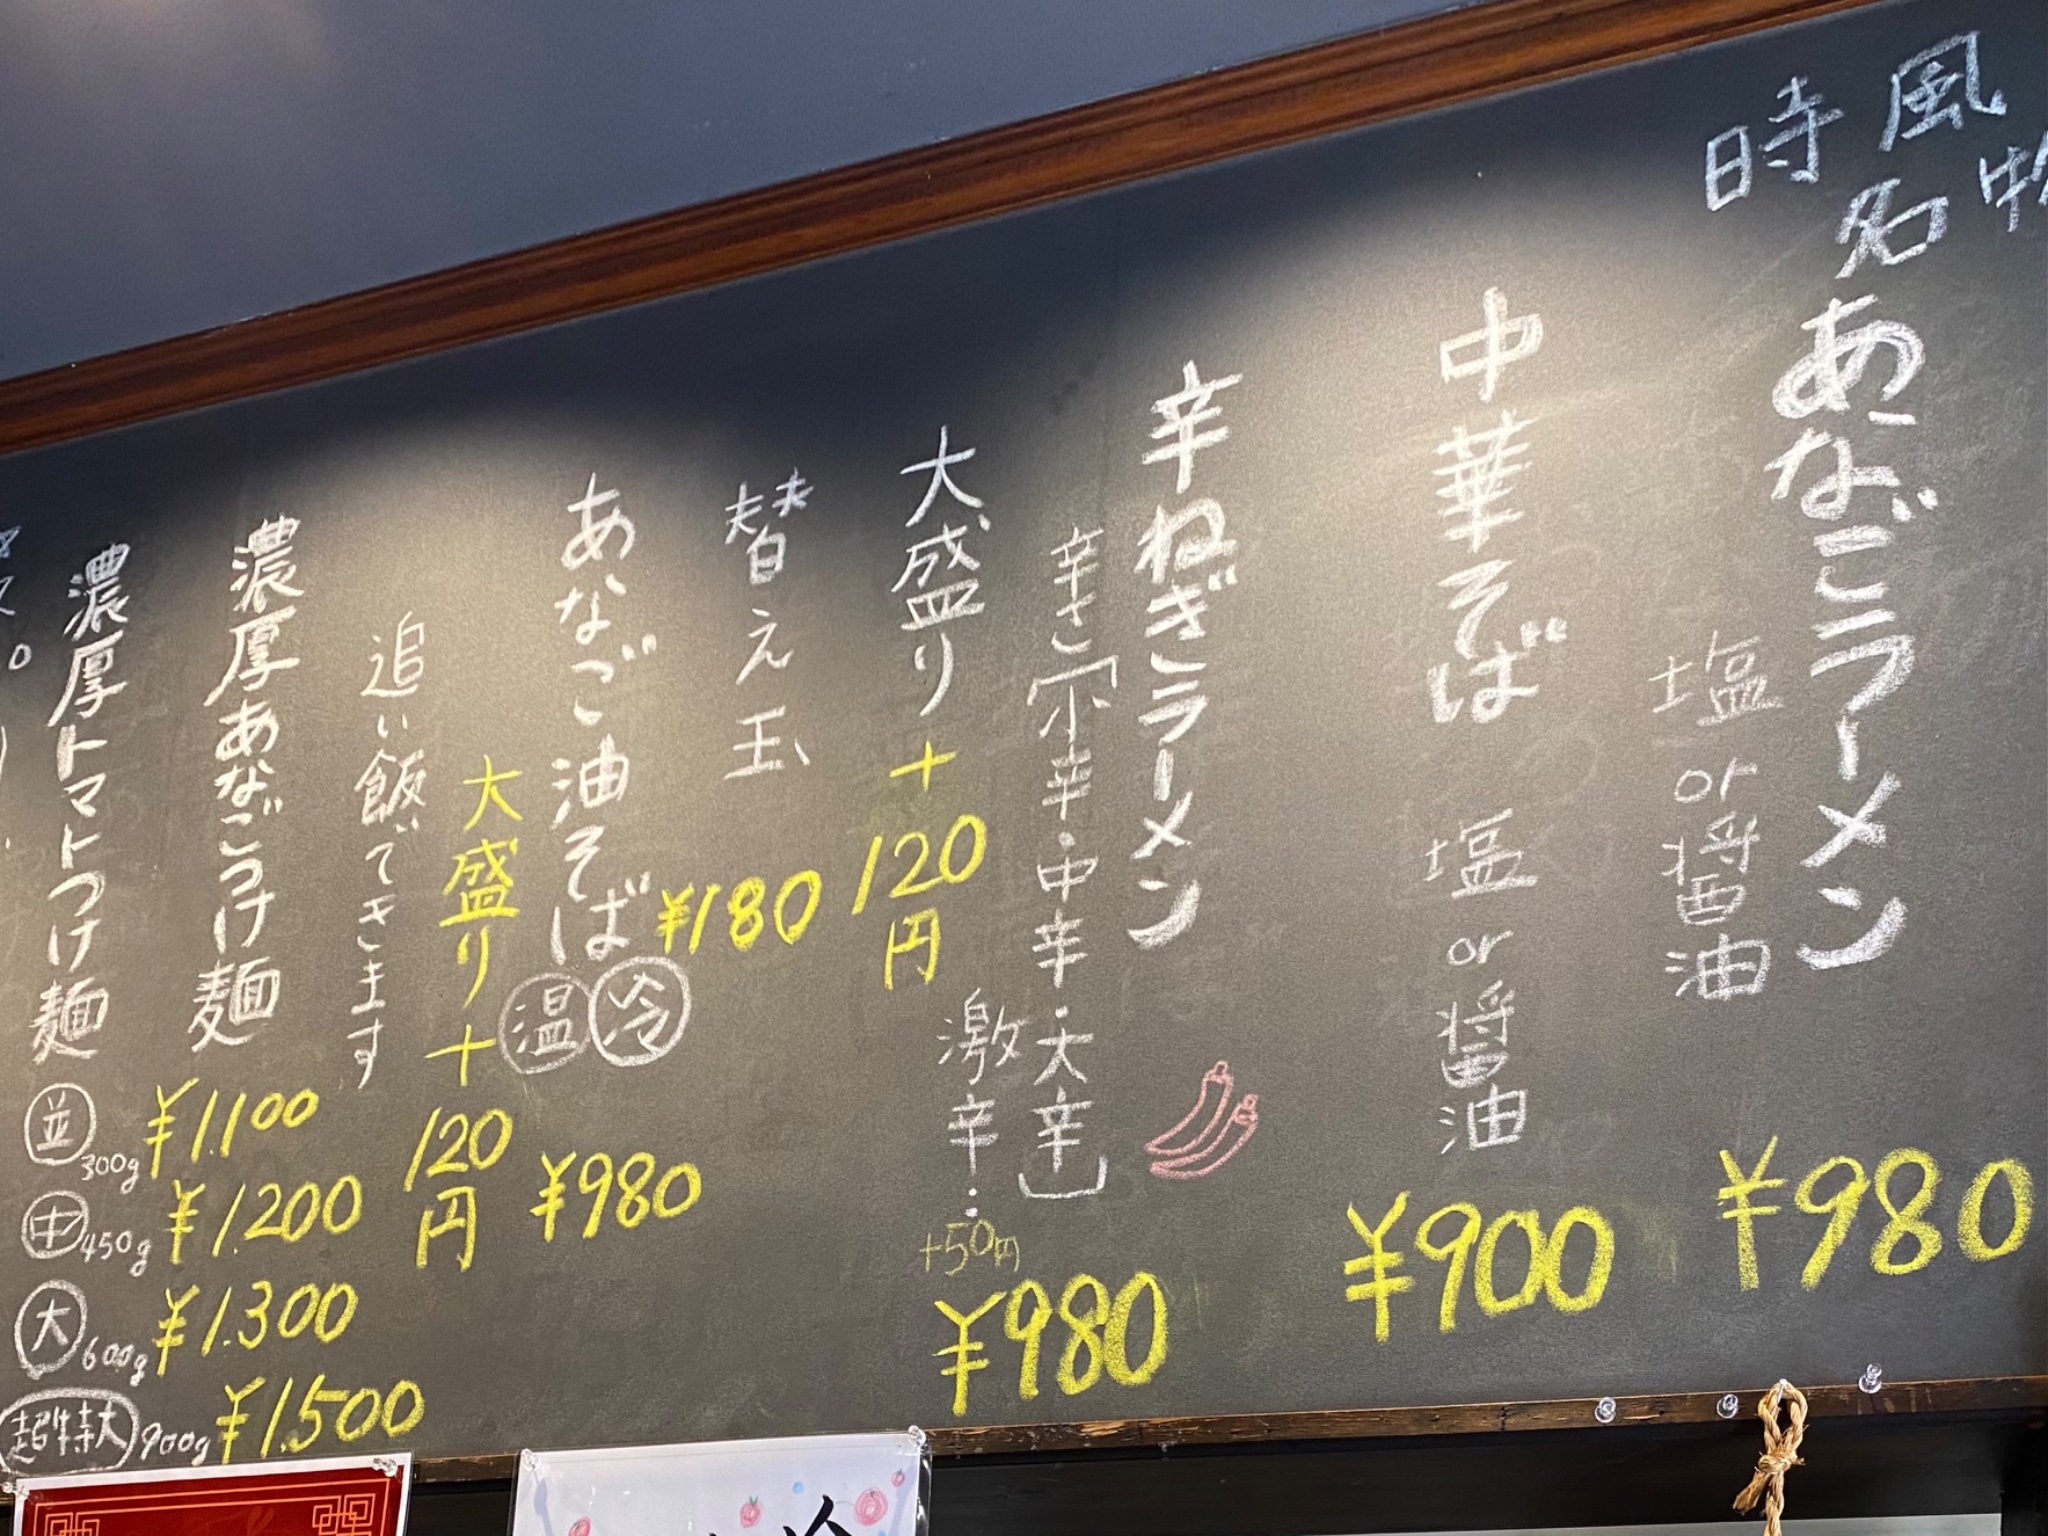 時風
名物
あなごラーメン
塩 or 醤油
¥980
中華そば
塩 or 醤油
¥900
辛ねぎラーメン
辛さ 小辛・中辛・大辛
激辛…
+50円
¥980
大盛り+120円
替え玉
¥180
あなご油そば
温 冷
¥980
大盛り+120円
追い飯できます
濃厚あなごつけ麺
濃厚トマトつけ麺
並 300g ¥1.100
中 450g ¥1.200
大 600g ¥1.300
超特大 900g ¥1.500